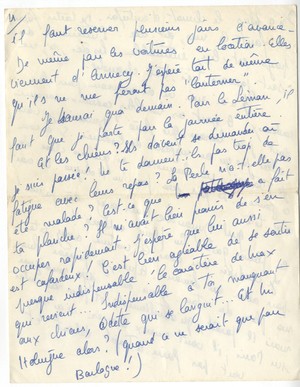 il faut réserver plusieurs jours d'avance.
De même pour les voitures en location. Elles
viennent d'Annecy. J'espère tout de même
qu'ils ne me feront pas "lanterner"
Je saurai ça demain. Pour le Léman, il
faut que je parte pour la journée entière.
Et les chiens? Ils doivent se demander où
je suis passée! Ne te donnent-ils pas trop de
fatigue avec leurs repas? La Perle n'a-t-elle pas
été malade? Est-ce que a fait
ta planche? Il m'avait bien promis de s'en
occuper rapidement. J'espère que lui aussi
est cafardeux! C'est bien agréable de se sentir
presque indispensable! le caractère de Max
qui revient... Indispensable à toi, manquant
aux chiens, Odette qui se languit... Et lui
alors? (Quand ce ne serait que pour
!)